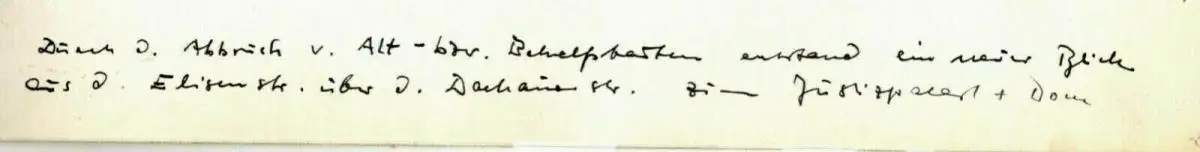 Durch d. Abbruch v. Alt- bzw. Behelfsbauten entstand ein neuer Blick
aus d. Elisenstr. über d. Dachauerstr. zum Justizpalast + Dom